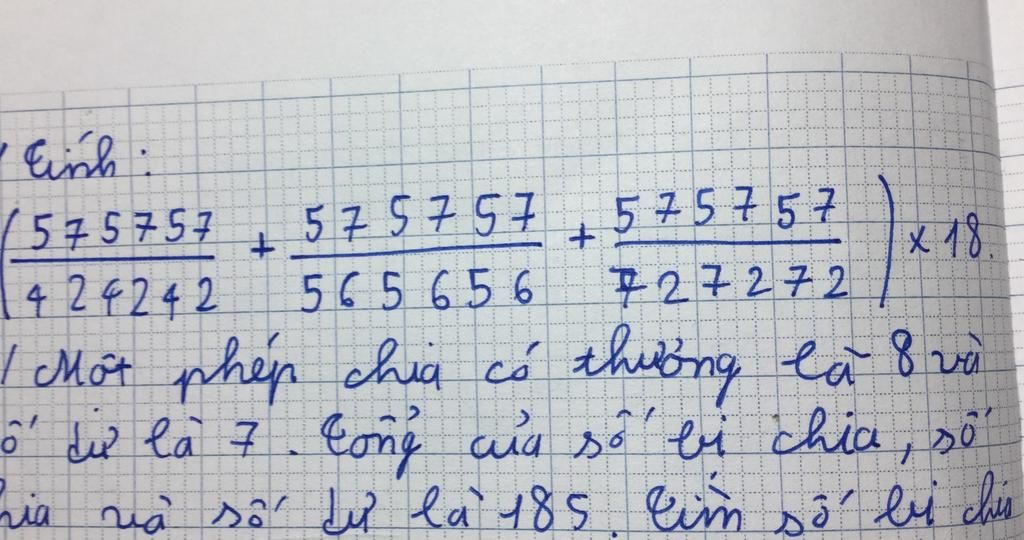 / Tính:
(575757/424242 + 575757/565656 + 575757/727272) × 18.
/ Một phép chia có thương là 8 và
ố dư là 7. Tổng của số bị chia, số
hia và số dư là 185. Tìm số bị chia